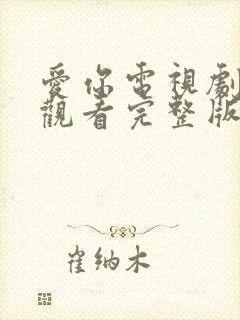 愛你電視劇
觀看完整版
崔纳木